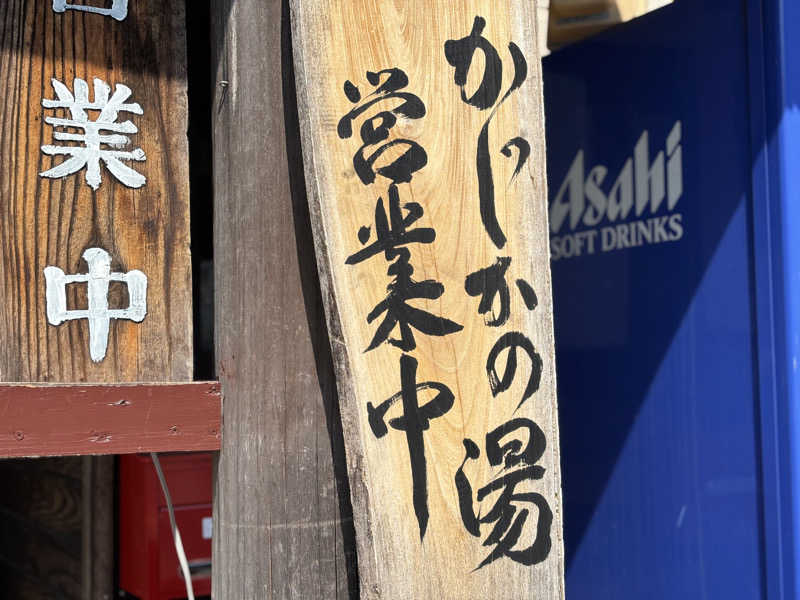 かじかの湯
営業中
業中
Asahi
SOFT DRINKS